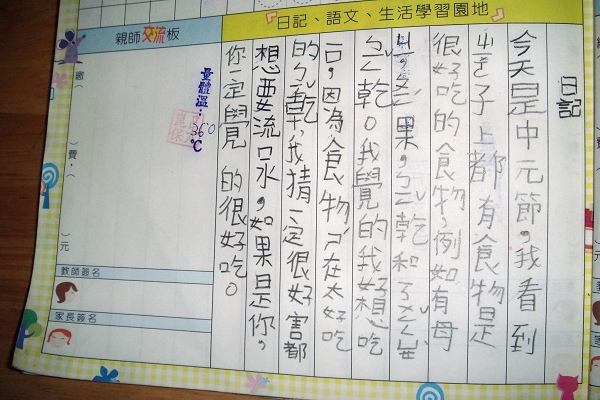 『日記、語文、生活學習園地』
日記
今天是中元節，我看到
子上都有食物是
很好吃的食物，例如有母
果，ㄅㄥˇ乾和
ㄅㄥˇ乾。我覺的我好想吃
，因為食物 在太好吃
的ㄅㄥˇ乾，我猜一定很好害都
想要流口水，如果是你，
你一定覺 的很好吃。
親師交流板
量體溫：36°C
繳（
）費，（
）元
教師簽名
家長簽名